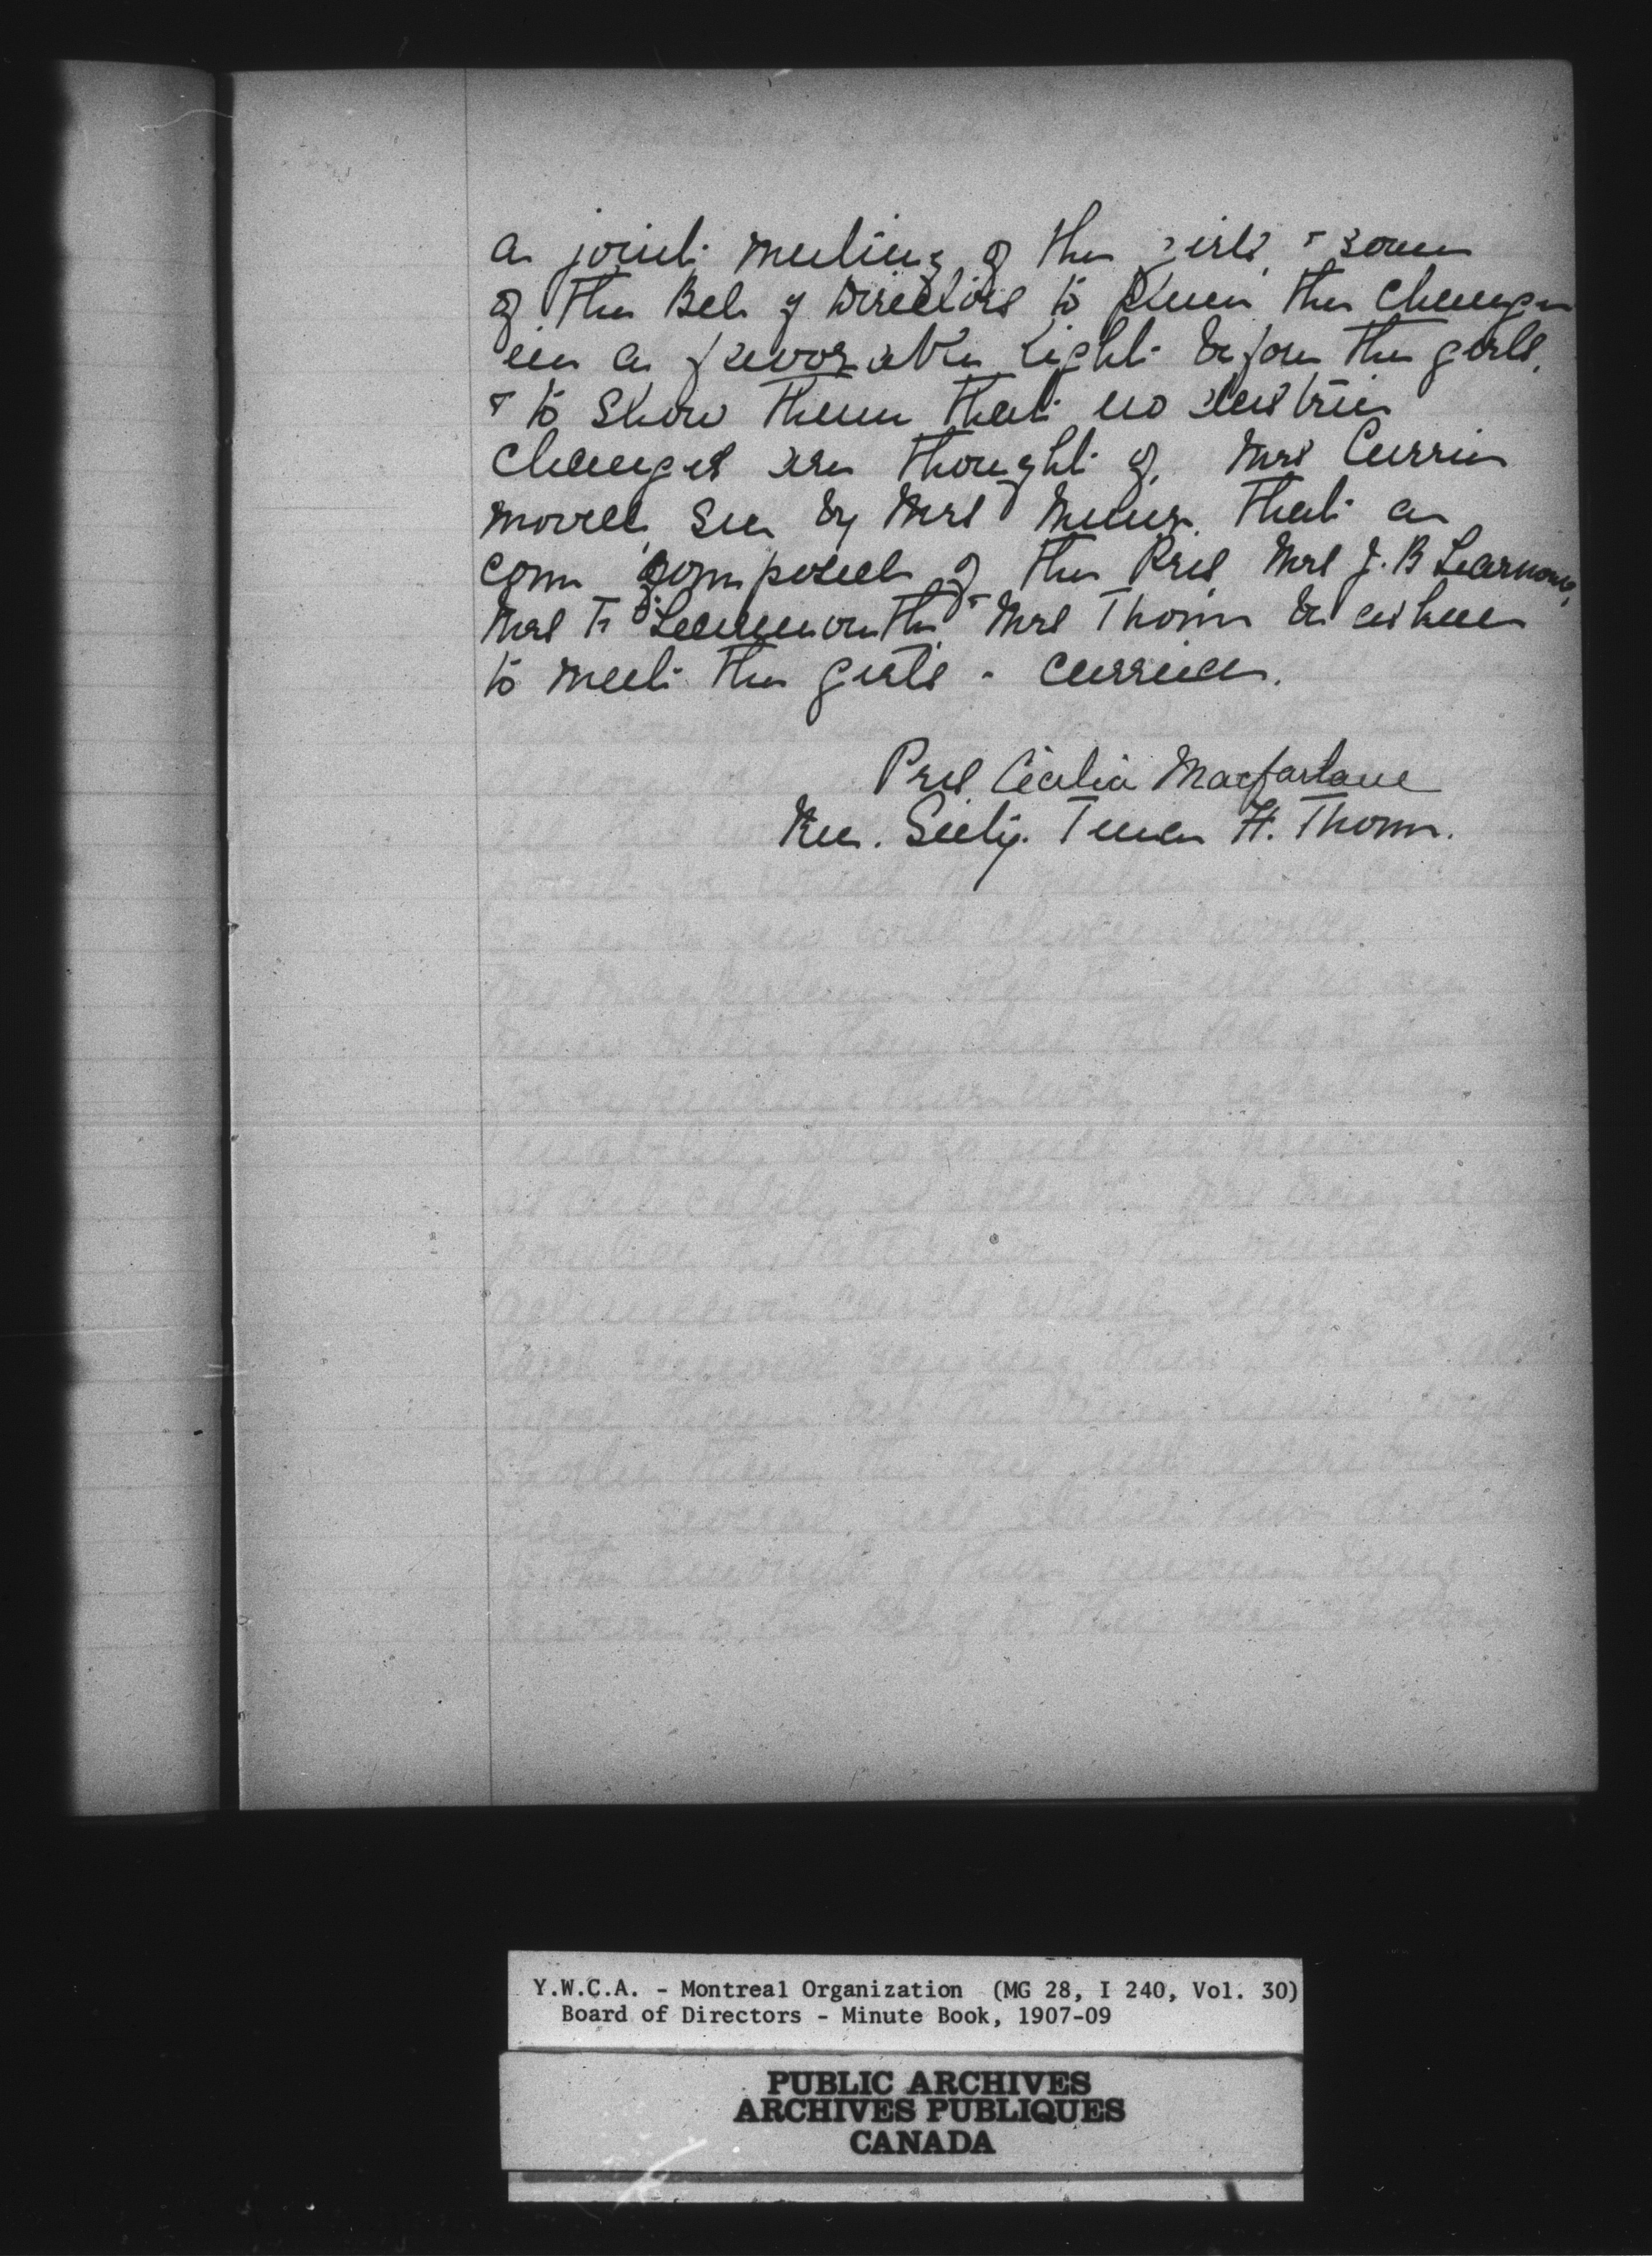 a joint meeting of the girls, & some
of the Bd. of Directors to place the changes
in a favorable light before the girls,
& to show them that no drastic
changes are thought of. Mrs Currie
moved, sec by Mrs that a
com composed of the Pres Mrs J. B Learmont,
Mrs Learmonth & Mrs Thom be asked
to meet the girls - carried.
Pres Cecilia Macfarlane
Rec. Secty. H. Thom.
Y.W.C.A. - Montreal Organization (MG 28, I 240, Vol. 30)
Board of Directors - Minute Book, 1907-09
PUBLIC ARCHIVES
ARCHIVES PUBLIQUES
CANADA